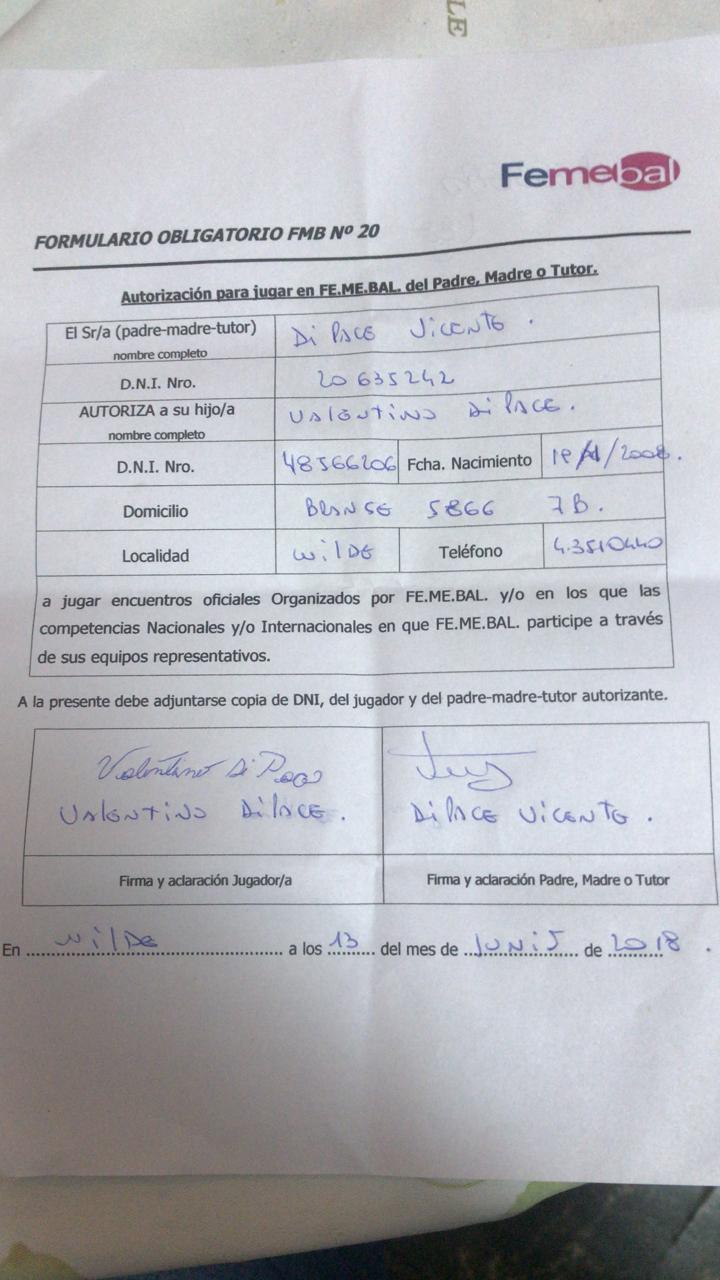 LE
Femebal
FORMULARIO OBLIGATORIO FMB Nº 20
Autorización para jugar en FE.ME.BAL. del Padre, Madre o Tutor.
El Sr/a (padre-madre-tutor)
nombre completo
Di PACE VICENTE .
D.N.I. Nro.
20 635242
AUTORIZA a su hijo/a
nombre completo
VALENTINO Di PACE.
D.N.I. Nro.
48566206
Fcha. Nacimiento
/2008.
Domicilio
5866 7B.
Localidad
WilDE
Teléfono
4.3510440
a jugar encuentros oficiales Organizados por FE.ME.BAL. y/o en los que las
competencias Nacionales y/o Internacionales en que FE.ME.BAL. participe a través
de sus equipos representativos.
A la presente debe adjuntarse copia de DNI, del jugador y del padre-madre-tutor autorizante.
Valentino Di Pace
VALENTINO DiPACE.
DiPACE VICENTE .
Firma y aclaración Jugador/a
Firma y aclaración Padre, Madre o Tutor
En WilDE a los 13 del mes de JUNIO de 2018 .